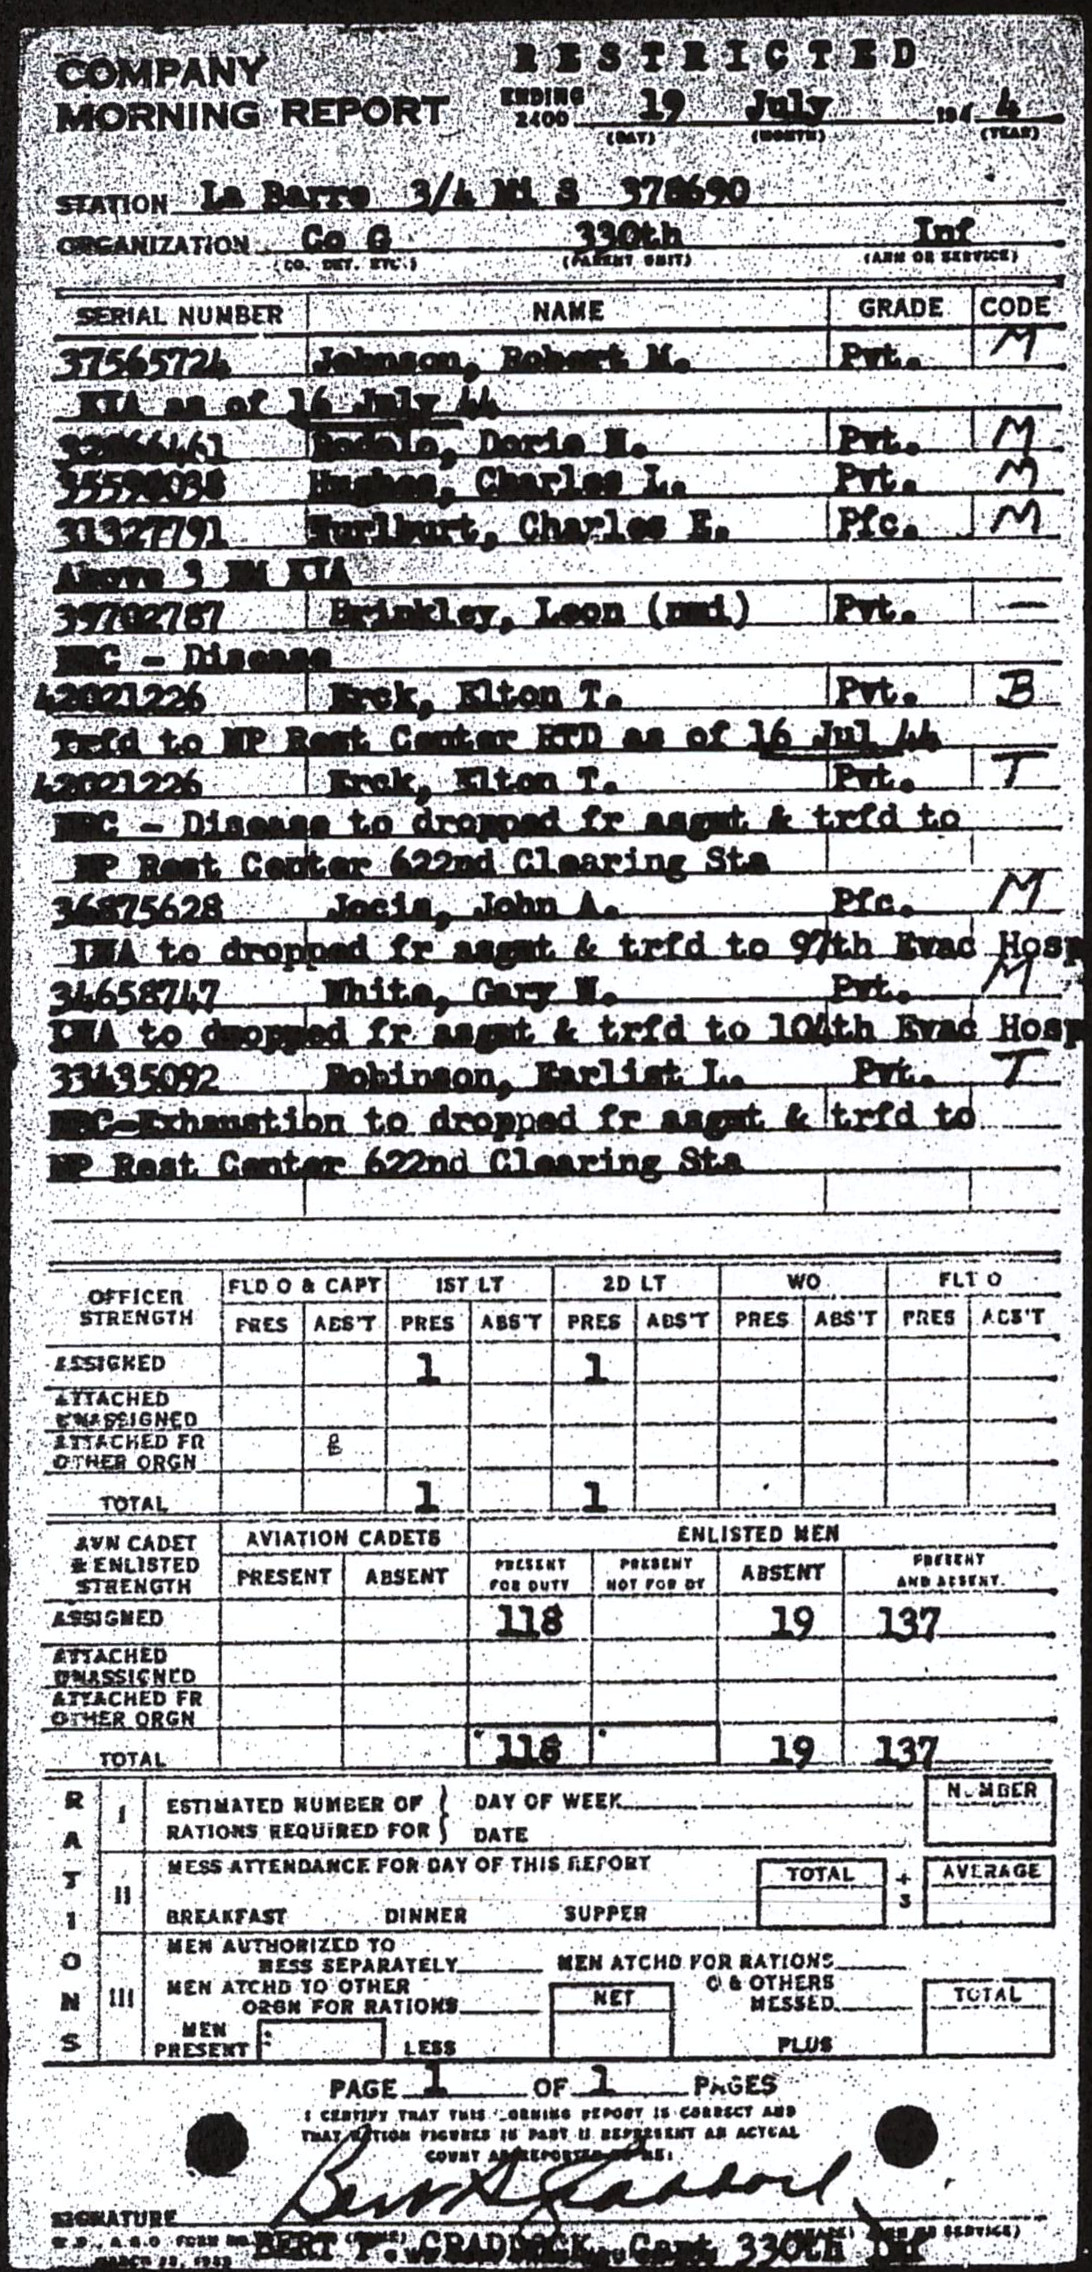 RESTRICTED
COMPANY
MORNING REPORT
ENDING 2400 19 July 194 4
(DAY) (MONTH) (YEAR)
STATION La Barre 3/4 Mi S 378690
ORGANIZATION Co G 330th Inf
(CO. DET. ETC.) (PARENT UNIT) (ARM OR SERVICE)
SERIAL NUMBER NAME GRADE CODE
37565724 Johnson, Robert M. Pvt. M
KIA as of 16 July 44
Doris N. Pvt. M
Hughes, Charles L. Pvt. M
31327791 Hurlburt, Charles E. Pfc. M
Above 3 EM KIA
39702787 Brinkley, Leon (nmi) Pvt. —
NBC - Disease
42021226 Erck, Elton T. Pvt. B
Trfd to NP Rest Center RTD as of 16 Jul 44
42021226 Erck, Elton T. Pvt. T
NBC - Disease to dropped fr asgmt & trfd to
NP Rest Center 622nd Clearing Sta
36875628 Jocis, John A. Pfc. M
LWA to dropped fr asgmt & trfd to 97th Evac Hosp
34658747 White, Gary W. Pvt. M
LWA to dropped fr asgmt & trfd to 104th Evac Hosp
33435092 Robinson, Earlist L. Pvt. T
NBC-Exhaustion to dropped fr asgmt & trfd to
NP Rest Center 622nd Clearing Sta
OFFICER STRENGTH FLD O & CAPT 1ST LT 2D LT WO FLT O
PRES ABS'T PRES ABS'T PRES ABS'T PRES ABS'T PRES ABS'T
ASSIGNED 1 1
ATTACHED UNASSIGNED
ATTACHED FR OTHER ORGN
TOTAL 1 1
AVN CADET & ENLISTED STRENGTH AVIATION CADETS ENLISTED MEN
PRESENT ABSENT PRESENT FOR DUTY PRESENT NOT FOR DY ABSENT PRESENT AND ABSENT
ASSIGNED 118 19 137
ATTACHED UNASSIGNED
ATTACHED FR OTHER ORGN
TOTAL 118 19 137
RATIONS
I ESTIMATED NUMBER OF RATIONS REQUIRED FOR DAY OF WEEK NUMBER
DATE
II MESS ATTENDANCE FOR DAY OF THIS REPORT TOTAL ÷ 3 AVERAGE
BREAKFAST DINNER SUPPER
III MEN AUTHORIZED TO MESS SEPARATELY MEN ATCHD FOR RATIONS
MEN ATCHD TO OTHER ORGN FOR RATIONS NET O & OTHERS MESSED TOTAL
MEN PRESENT LESS PLUS
PAGE 1 OF 1 PAGES
I CERTIFY THAT THIS MORNING REPORT IS CORRECT AND
THAT RATION FIGURES IN PART II REPRESENT AN ACTUAL
COUNT AS REPORTED TO ME:
SIGNATURE
BERT P. CRADDOCK, Capt 330th Inf